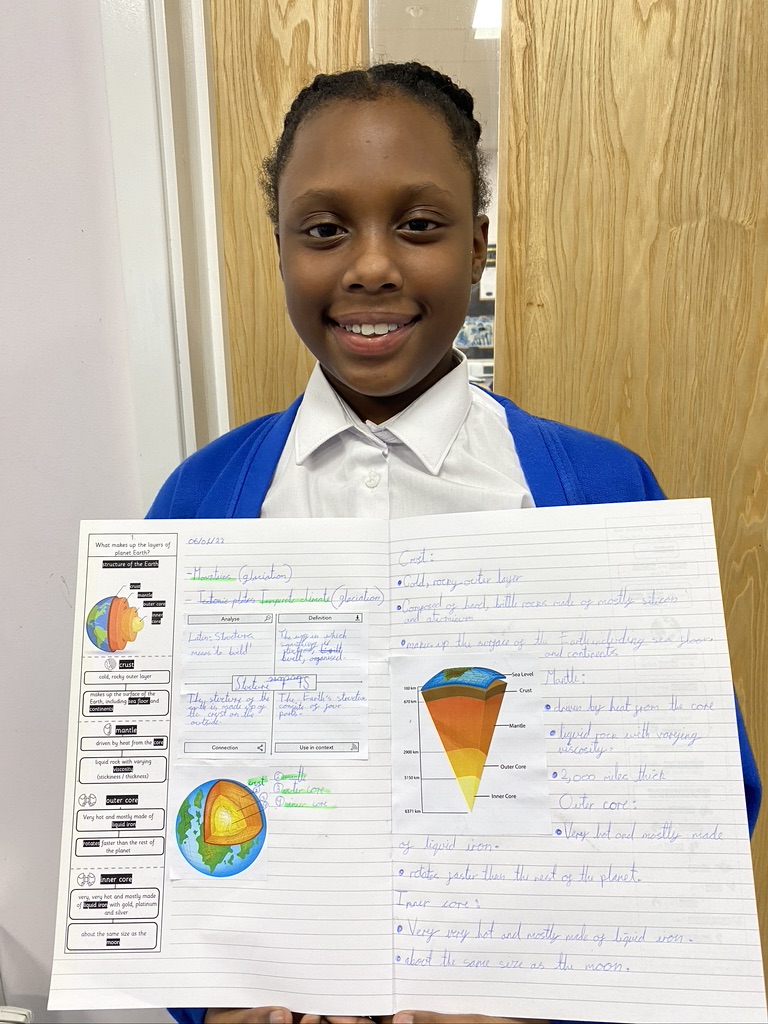 1.
What makes up the layers of
planet Earth?
structure of the Earth
crust
mantle
outer core
inner
core
crust
cold, rocky outer layer
makes up the surface of the
Earth, including sea floor and
continents
mantle
driven by heat from the core
liquid rock with varying
viscosity
(stickiness / thickness)
outer core
Very hot and mostly made of
liquid iron
rotates faster than the rest of
the planet
inner core
very, very hot and mostly made
of liquid iron with gold, platinum
and silver
about the same size as the
moon
- Mountains (glaciation)
- Tectonic plates Temperate climate (glaciation)
Analyse
Definition
Latin: Structura
means 'to build'
The way in which
something is
built, organised.
Structure
The structure of the
earth is made up of
the crust on the
outside.
The Earth's structure
consists of four
parts.
Connection
Use in context
crust
mantle
outer core
inner core
Crust:
• Cold, rocky outer layer
• Composed of hard, brittle rocks made of mostly silicon
and aluminium
• makes up the surface of the Earth including sea floors
and continents
Sea Level
Crust
Mantle
Outer Core
Inner Core
2900 km
5150 km
6371 km
Mantle:
• driven by heat from the core
• liquid rock with varying
viscosity.
• 2,000 miles thick
Outer core:
• Very hot and mostly made
of liquid iron.
• rotates faster than the rest of the planet.
Inner core:
• Very very hot and mostly made of liquid iron.
• about the same size as the moon.